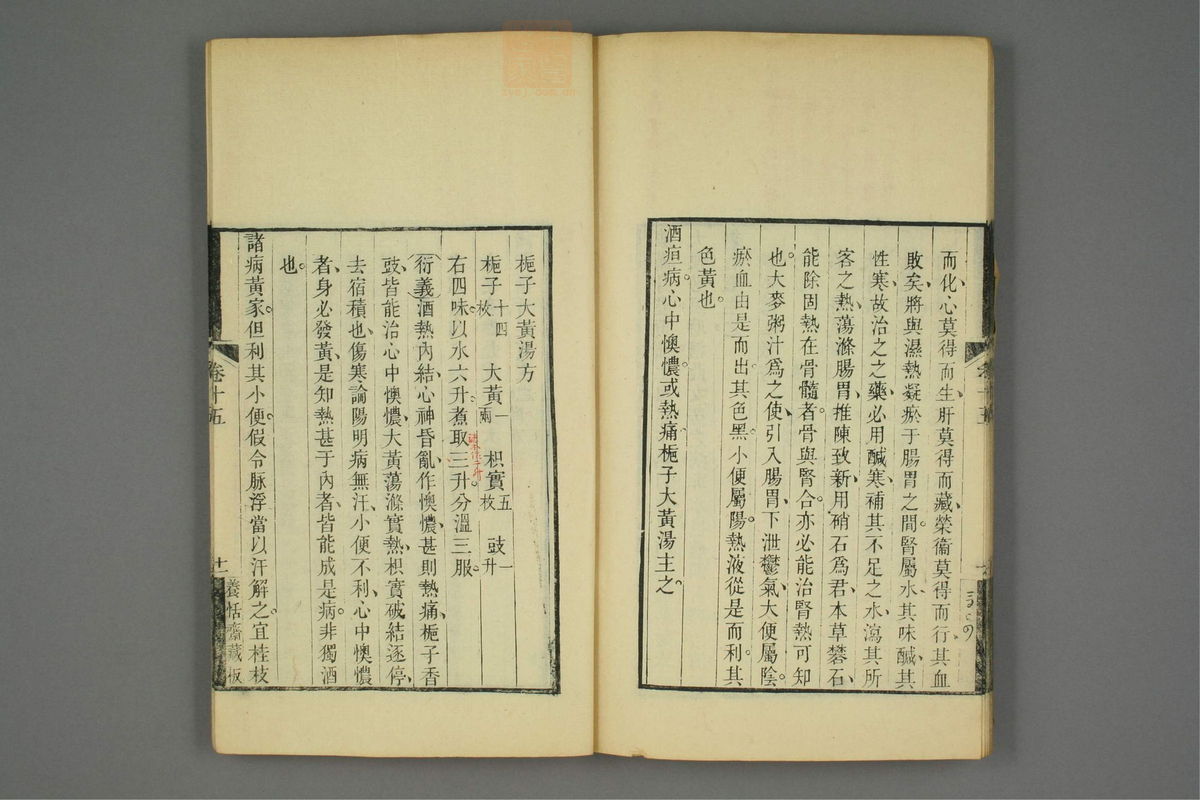 而化心莫得而生肝莫得而藏榮衞莫得而行其血
敗矣將與濕熱凝瘀于腸胃之間腎屬水其味醎其
性寒故治之之藥必用醎寒補其不足之水瀉其所
客之熱蕩滌腸胃推陳致新用硝石爲君本草礬石
能除固熱在骨髓者骨與腎合亦必能治腎熱可知
也大麥粥汁爲之使引入腸胃下泄鬱氣大便屬陰
瘀血由是而出其色黑小便屬陽熱液從是而利其
色黃也
酒疸病心中懊憹或熱痛梔子大黃湯主之
卷十五
梔子大黃湯方
梔子十四枚 大黃一兩 枳實五枚 豉一升
右四味以水六升煮取三升分溫三服
衍義酒熱內結心神昏亂作懊憹甚則熱痛梔子香
豉皆能治心中懊憹大黃蕩滌實熱枳實破結逐停
去宿積也傷寒論陽明病無汗小便不利心中懊憹
者身必發黃是知熱甚于內者皆能成是病非獨酒
也
諸病黃家但利其小便假令脉浮當以汗解之宜桂枝
卷十五
十一
養恬齋藏板